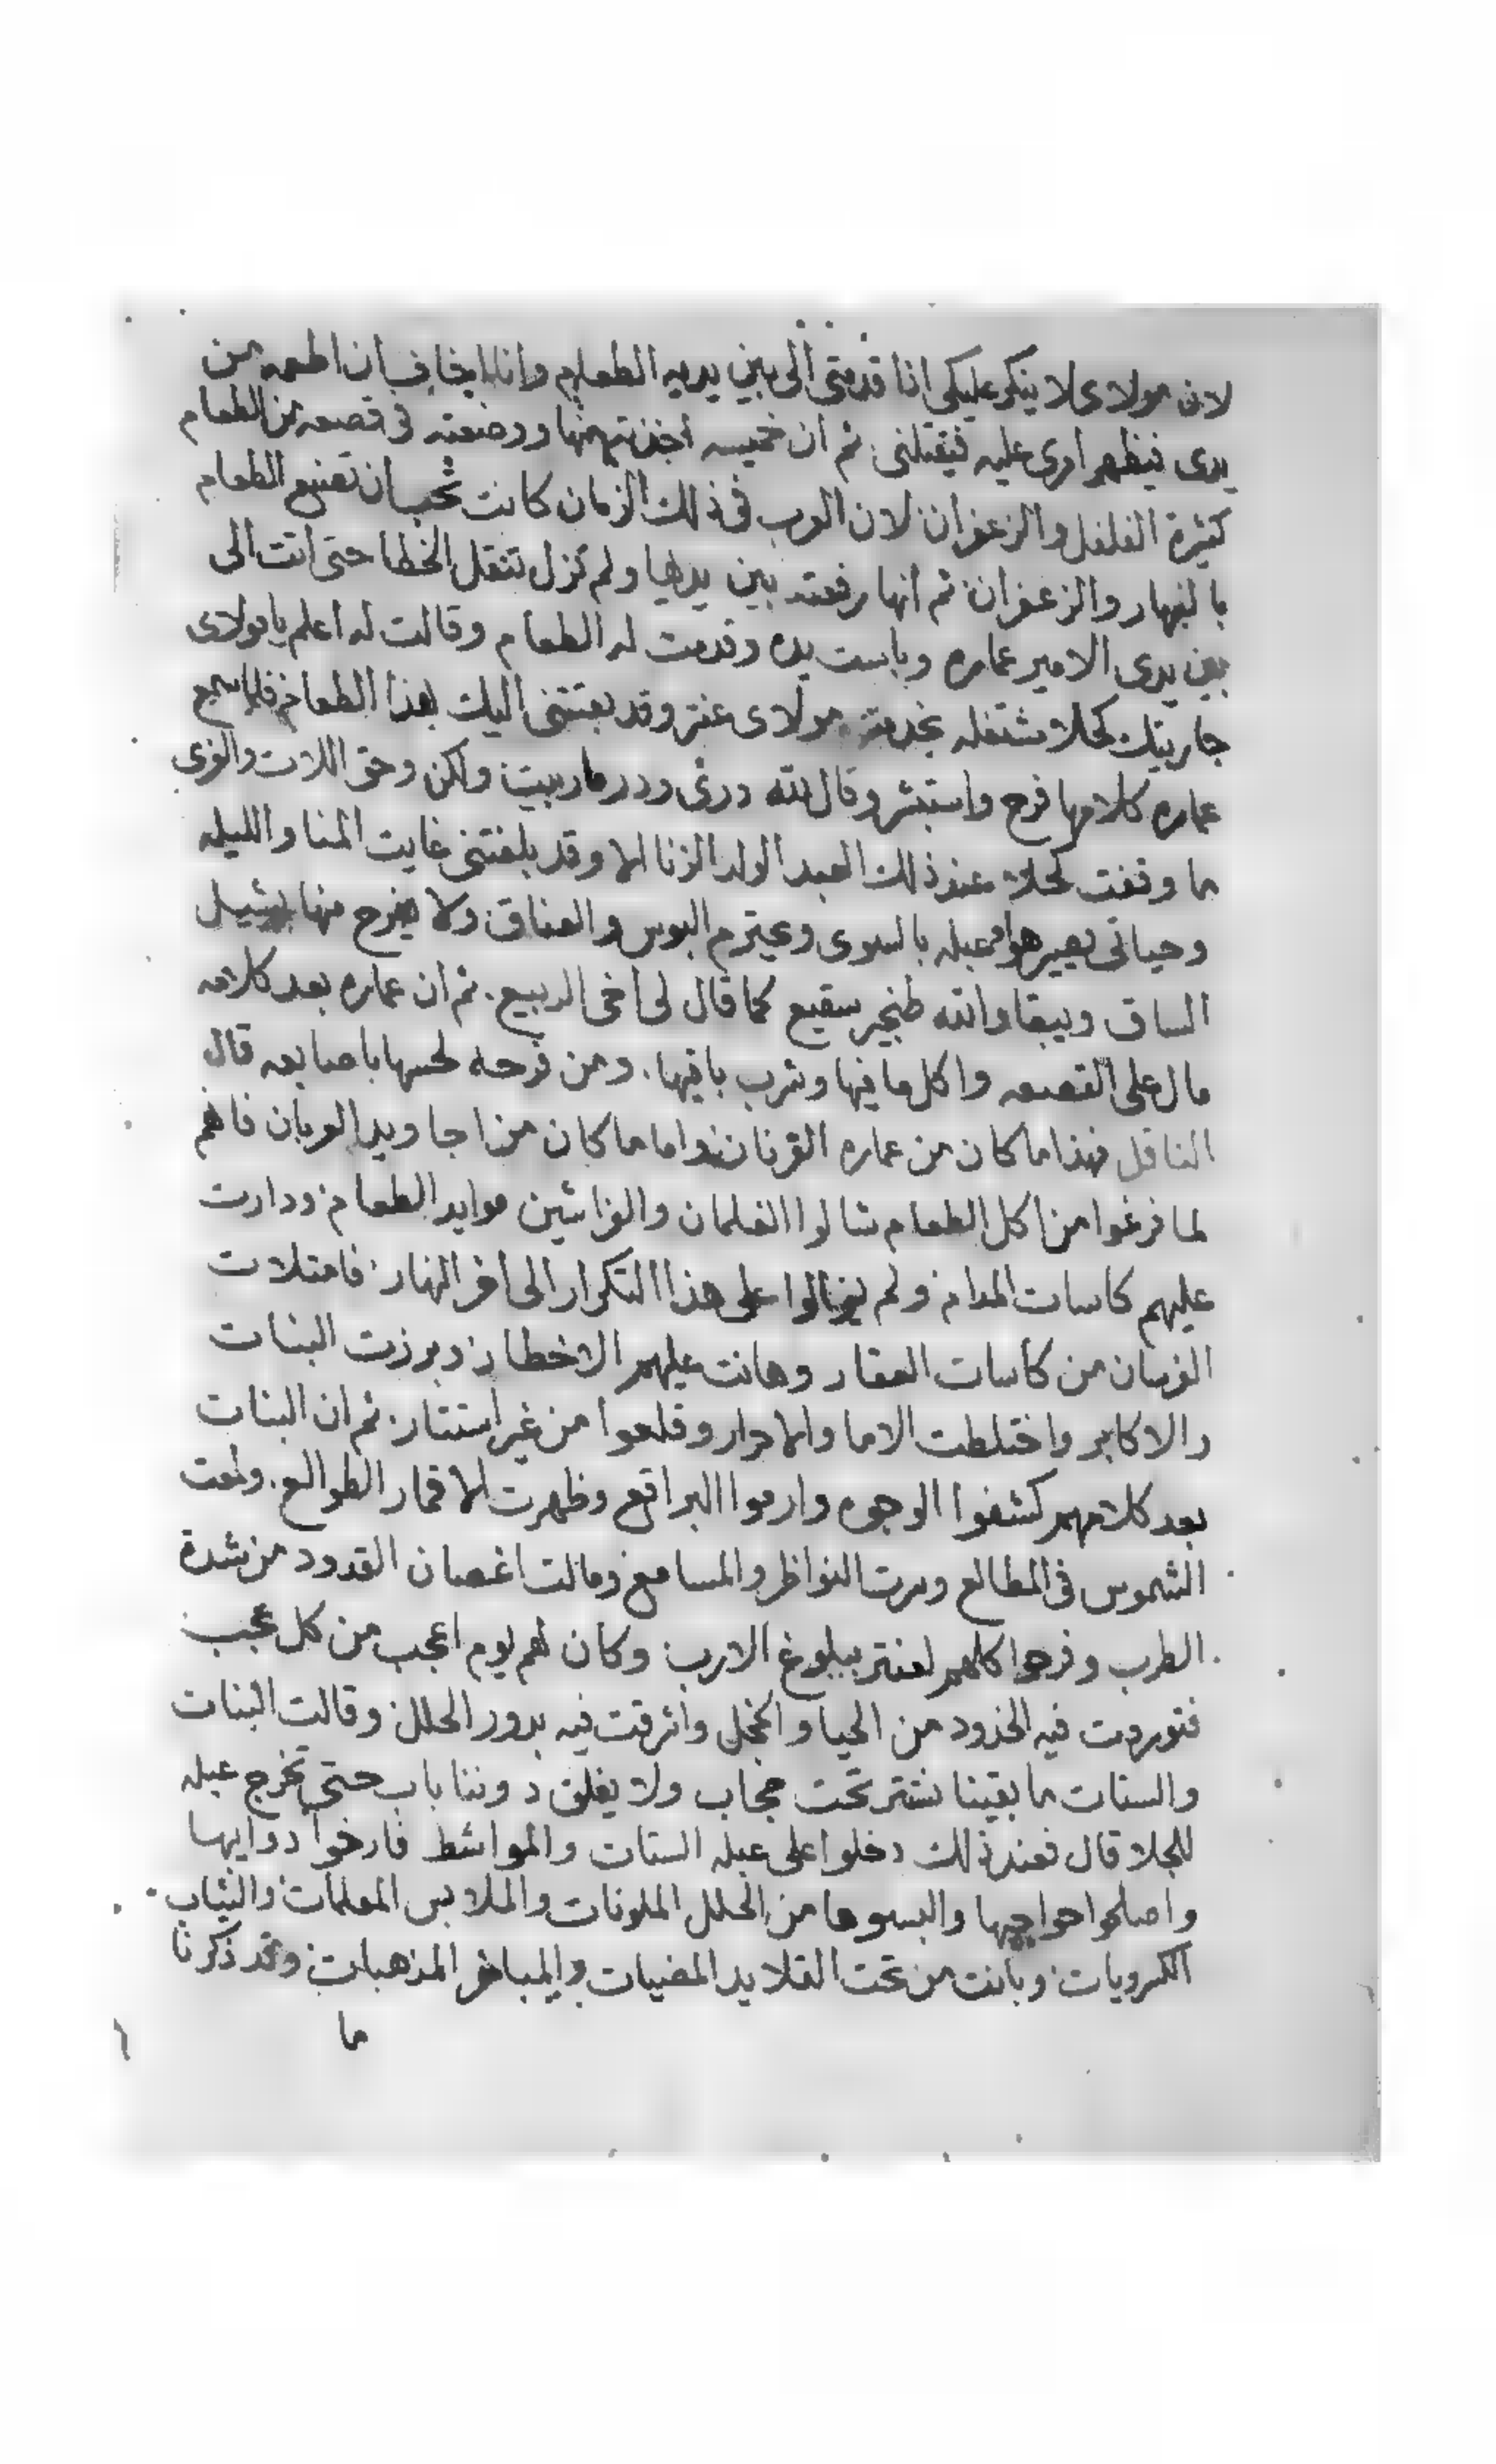 لان مولاى لا ينكر عليكى اذا قدمتى الى بين يديه الطعام وانا اخاف ان اطعمه من
يدى فيظهر امرى عليه فيقتلنى ثم ان خميسه اخذته منها ووضعته فى قصعه من الطعام
كثيرة الفلفل والزعفران لان العرب فى ذلك الزمان كانت تحب ان تصنع الطعام
بالبهار والزعفران ثم انها رفعته بين يديها ولم تزل تنقل الخطا حتى اتت الى
بين يدى الامير عماره وباست يده وقدمت له الطعام وقالت له اعلم يا مولاى
جاريتك كحلا مشتغله بخدمة مولاى عنتر وقد بعتتنى اليك بهذا الطعام فلما سمع
عماره كلامها فرح واستبشر وقال لله درى ودر ما ربيت ولكن وحق اللات والعزى
ما وقفت كحلا عند ذلك العبد الولد الزنا الا وقد بلغتنى غايت المنا والليله
وحياتى يصير هو وعبله بالسوى ويحترم البوس والعناق ولا يفرح منها بشيل
الساق ويبقا والله طنجير سقيع كما قال لى اخى الربيع ثم ان عماره بعد كلامه
مال على القصعه واكل ما فيها وشرب باقيها ومن فرحه لحسها باصابعه قال
الناقل فهذا ما كان من عماره القرنان واما ما كان من اجاويد العربان فانهم
لما فرغوا من اكل الطعام شالوا الغلمان والفراشين موايد الطعام ودارت
عليهم كاسات المدام ولم يزالوا على هذا التكرار الى اخر النهار فامتلات
الفرسان من كاسات العقار وهانت عليهم الاخطار وبرزت البنات
والاكابر واختلطت الاما والاحرار وقلعوا من غير استتار ثم ان البنات
بعد كلامهم كشفوا الوجوه وارموا البراقع وظهرت الاقمار الطوالع ولمعت
الشموس فى المطالع وسرت النواظر والمسامع ومالت اغصان القدود من شدة
الطرب وفرحوا كلهم لعنتر ببلوغ الارب وكان لهم يوم اعجب من كل عجب
فتوردت فيه الخدود من الحيا والخجل واشرقت فيه بدور الحلل وقالت البنات
والستات ما بقينا نشتر تحت حجاب ولا يغلق دوننا باب حتى تخرج عبله
للجلا قال فعند ذلك دخلوا على عبله الستات والمواشط فارخوا دوايبها
واصلحوا حواجبها والبسوها من الحلل الملونات والملابس المعلمات والثياب
الكسرويات وبانت من تحت القلايد المضيات والمباخر المذهبات وقد ذكرنا
ما